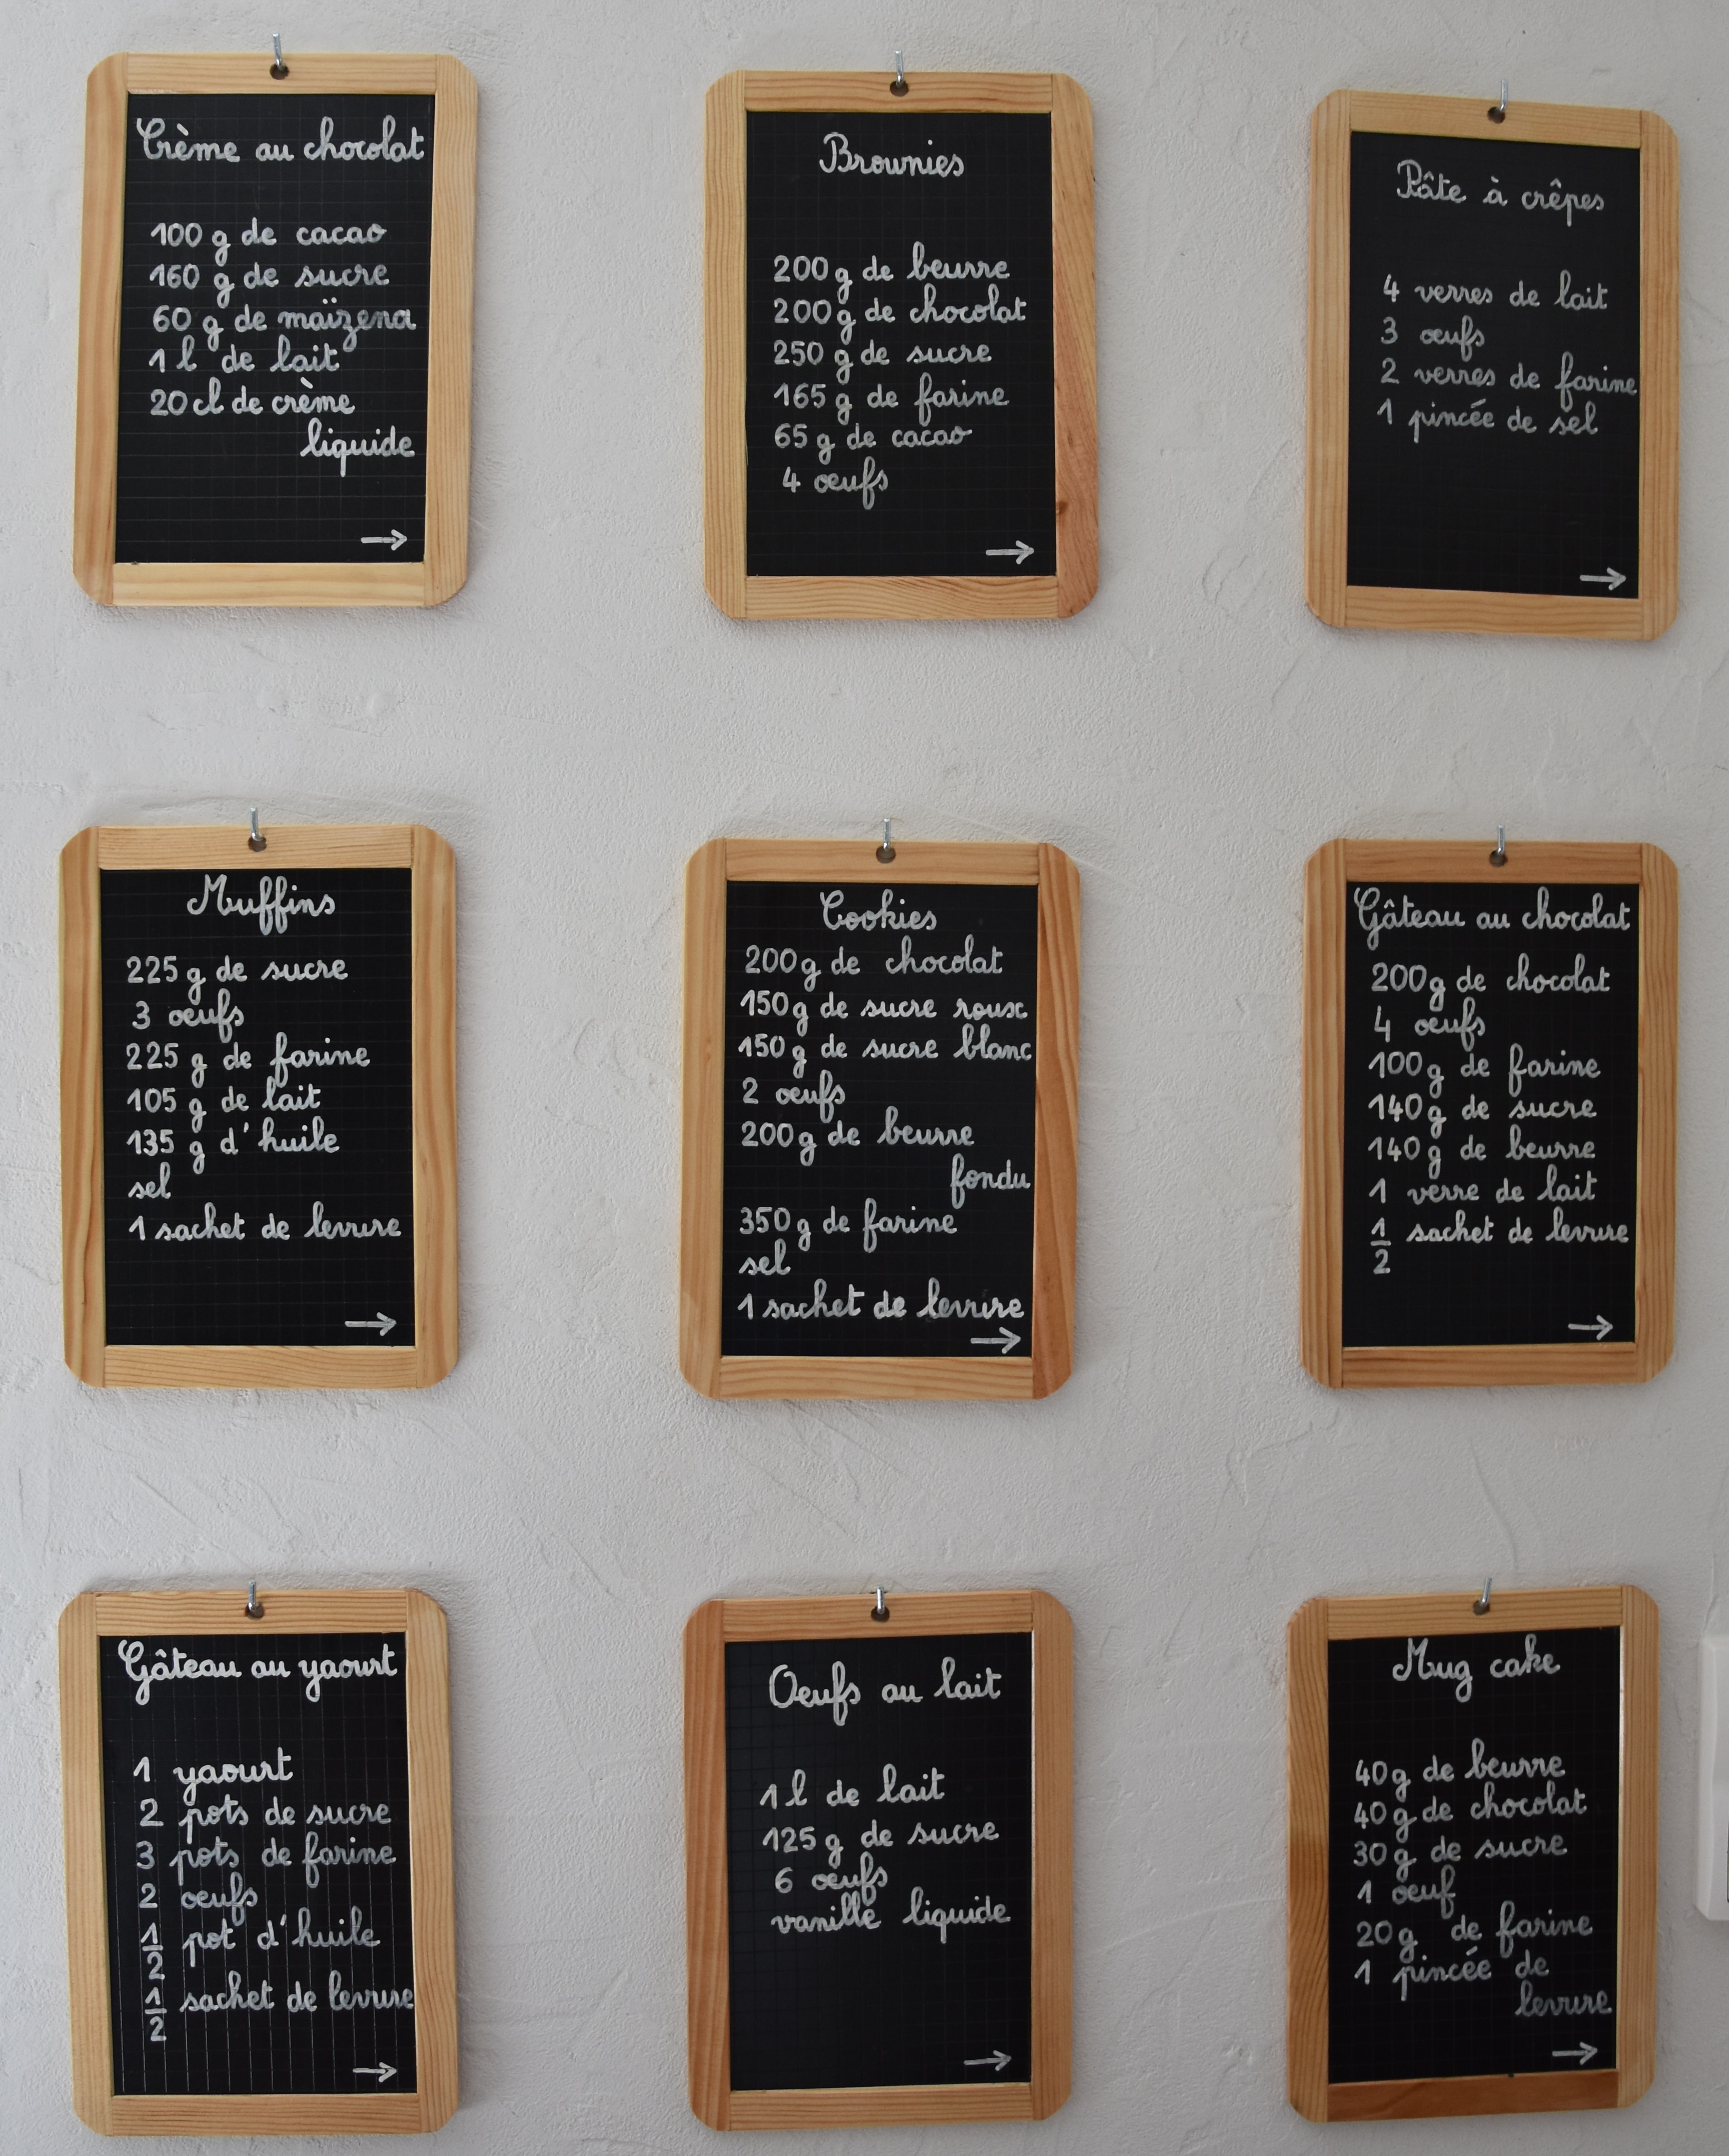 Crème au chocolat
100 g de cacao
160 g de sucre
60 g de maïzena
1 l de lait
20 cl de crème
liquide
→
Brownies
200 g de beurre
200 g de chocolat
250 g de sucre
165 g de farine
65 g de cacao
4 oeufs
→
Pâte à crêpes
4 verres de lait
3 oeufs
2 verres de farine
1 pincée de sel
→
Muffins
225 g de sucre
3 oeufs
225 g de farine
105 g de lait
135 g d'huile
sel
1 sachet de levure
→
Cookies
200 g de chocolat
150 g de sucre roux
150 g de sucre blanc
2 oeufs
200 g de beurre
fondu
350 g de farine
sel
1 sachet de levure
→
Gâteau au chocolat
200 g de chocolat
4 oeufs
100 g de farine
140 g de sucre
140 g de beurre
1 verre de lait
1/2 sachet de levure
→
Gâteau au yaourt
1 yaourt
2 pots de sucre
3 pots de farine
2 oeufs
1/2 pot d'huile
1/2 sachet de levure
→
Oeufs au lait
1 l de lait
125 g de sucre
6 oeufs
vanille liquide
→
Mug cake
40 g de beurre
40 g de chocolat
30 g de sucre
1 oeuf
20 g de farine
1 pincée de
levure
→